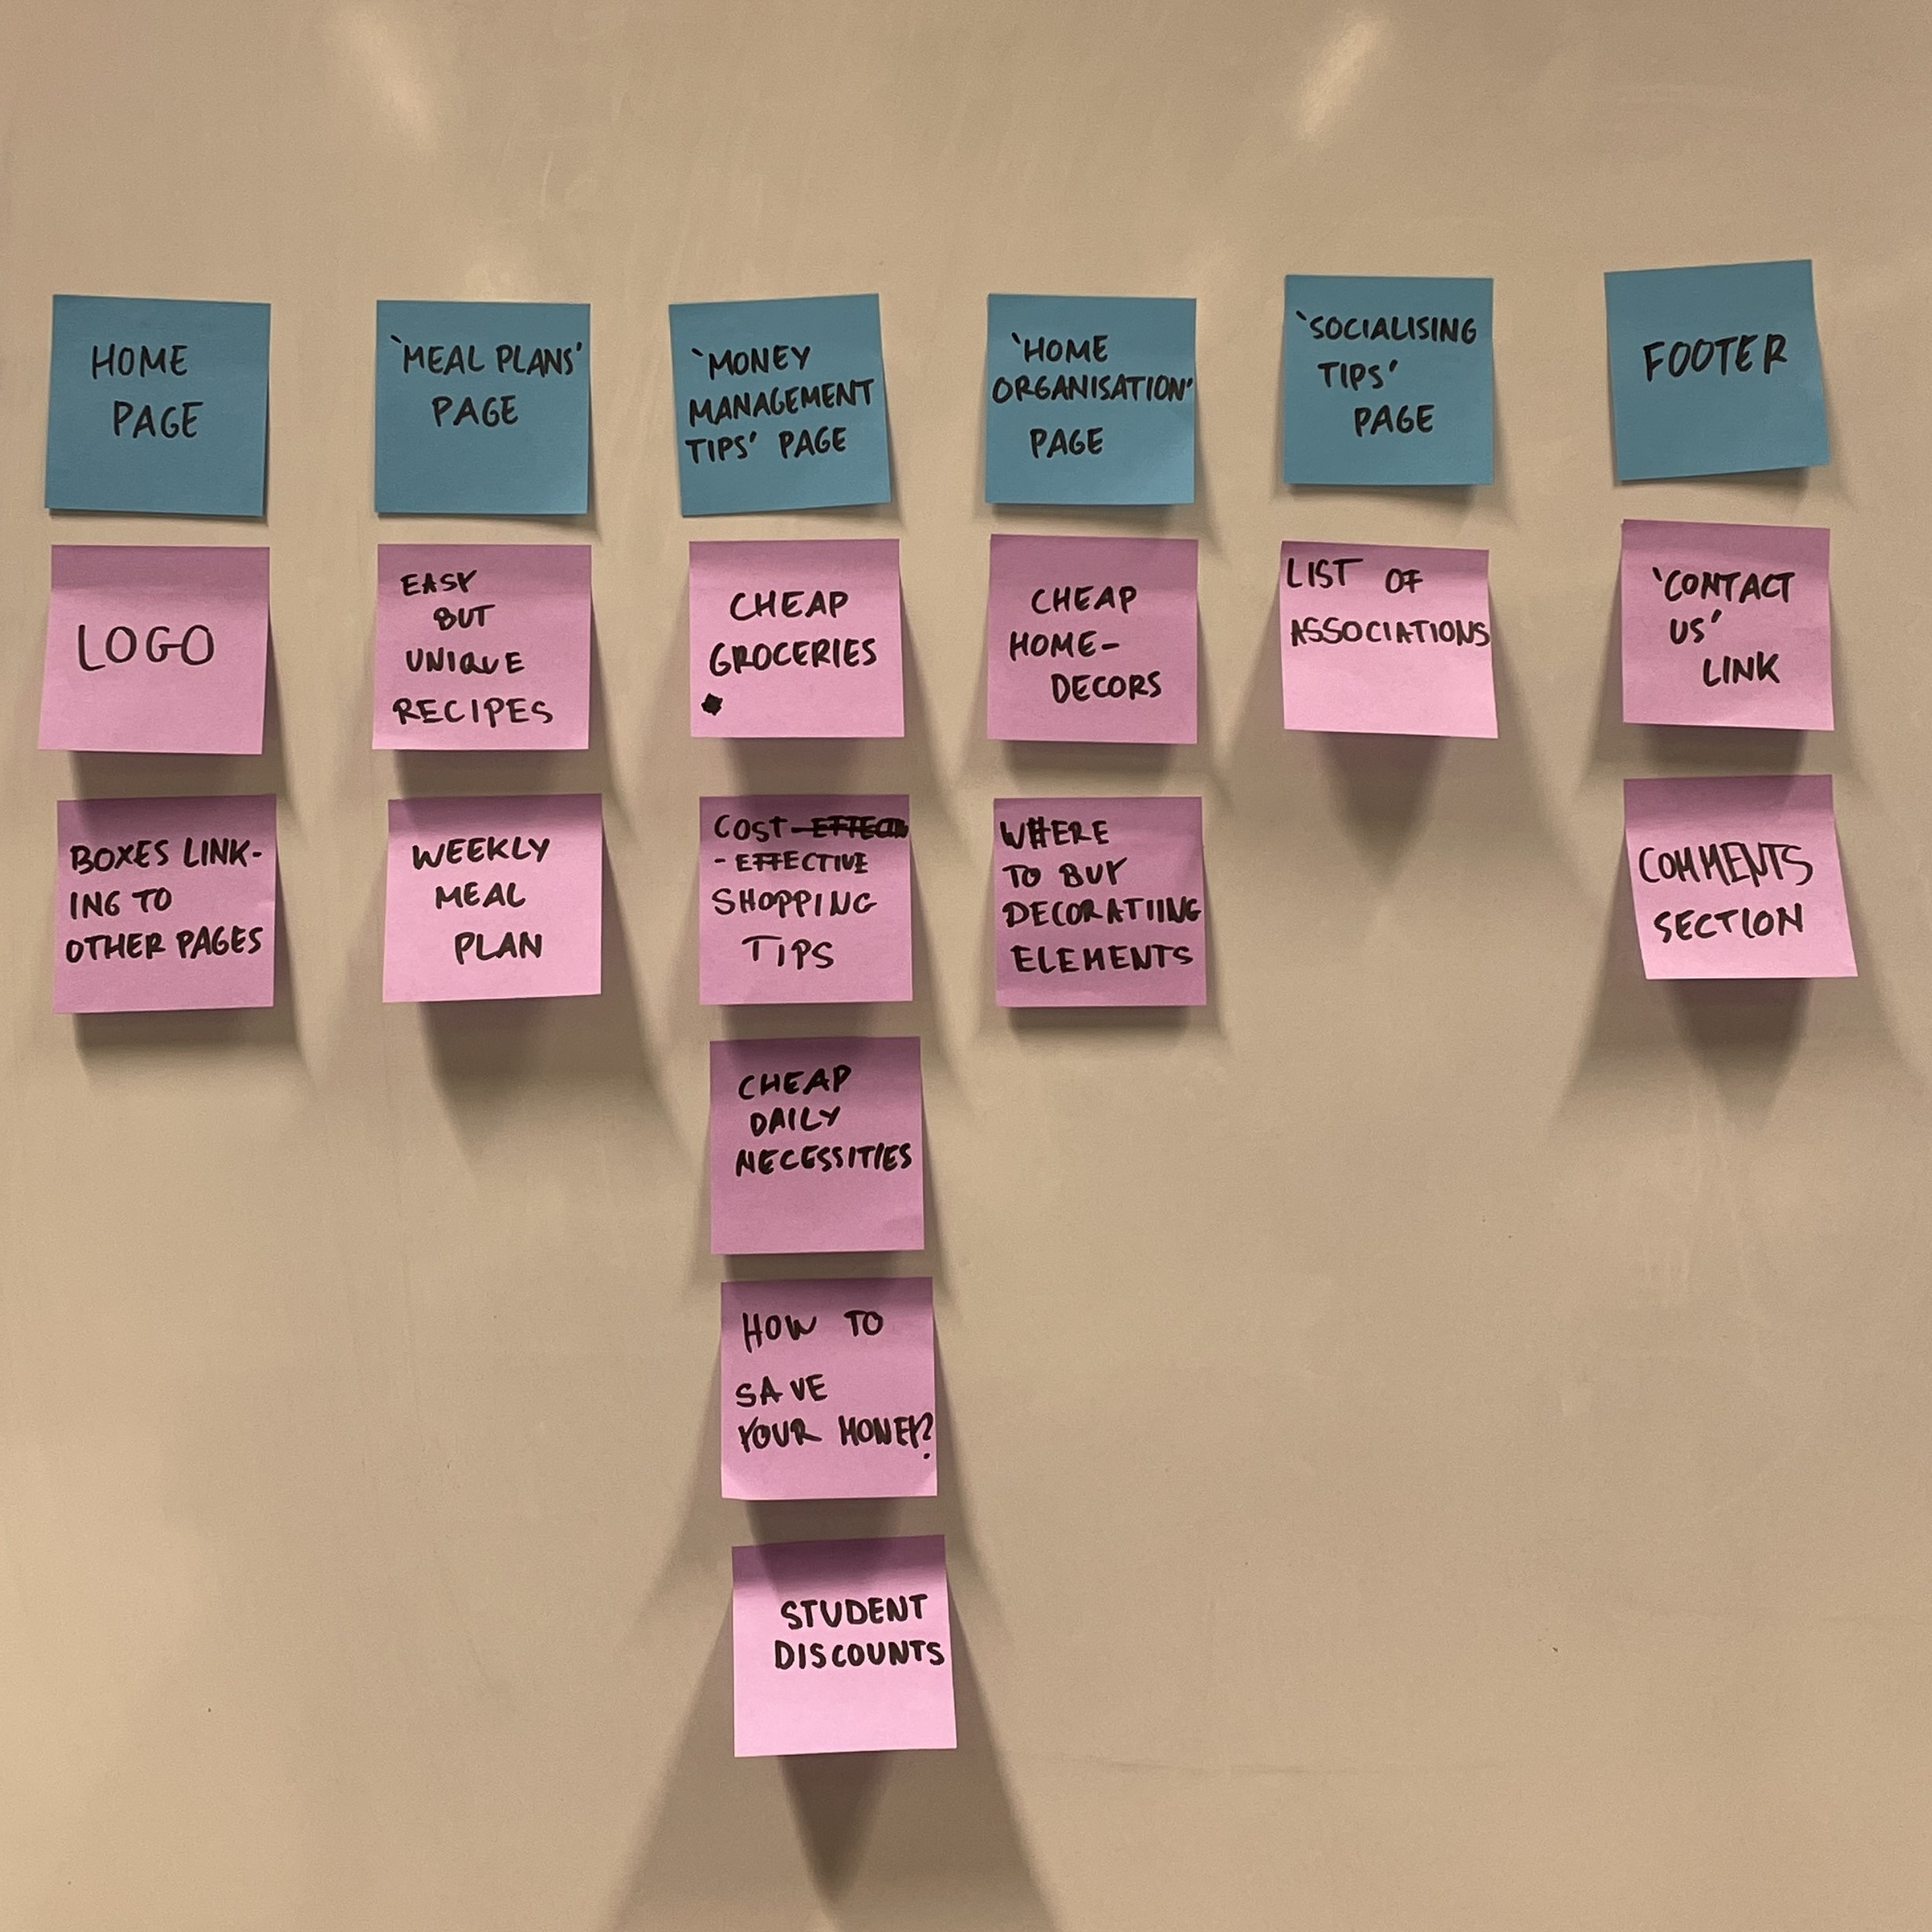 HOME
PAGE
LOGO
BOXES LINK-
ING TO
OTHER PAGES
'MEAL PLANS'
PAGE
EASY
BUT
UNIQUE
RECIPES
WEEKLY
MEAL
PLAN
'MONEY
MANAGEMENT
TIPS' PAGE
CHEAP
GROCERIES
COST
- EFFECTIVE
SHOPPING
TIPS
CHEAP
DAILY
NECESSITIES
HOW TO
SAVE
YOUR MONEY?
STUDENT
DISCOUNTS
'HOME
ORGANISATION'
PAGE
CHEAP
HOME-
DECORS
WHERE
TO BUY
DECORATIING
ELEMENTS
'SOCIALISING
TIPS'
PAGE
LIST OF
ASSOCIATIONS
FOOTER
'CONTACT
US'
LINK
COMMENTS
SECTION